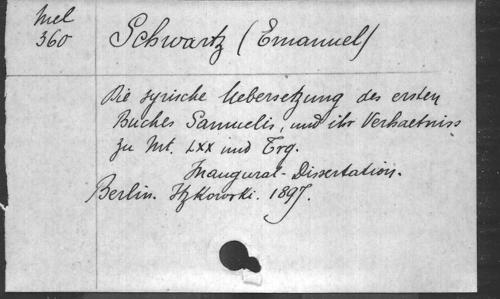 Mel
360
Schwartz (Emanuel)
Die syrische Uebersetzung des ersten
Buches Samuelis, und ihr Verhaetniss
zu Mt. LXX und Trg.
Inaugural-Dissertation.
Berlin. Itzkowski. 1897.